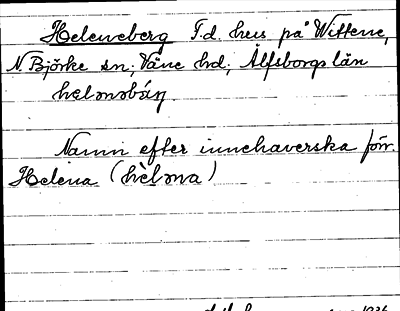 Heleneberg F.d. hus på Wittene,
N. Björke sn; Väne hd; Älfsborgs län
helɘnɘbárj.
Namn efter innehaverska förr.
Helena (hèlɘna)